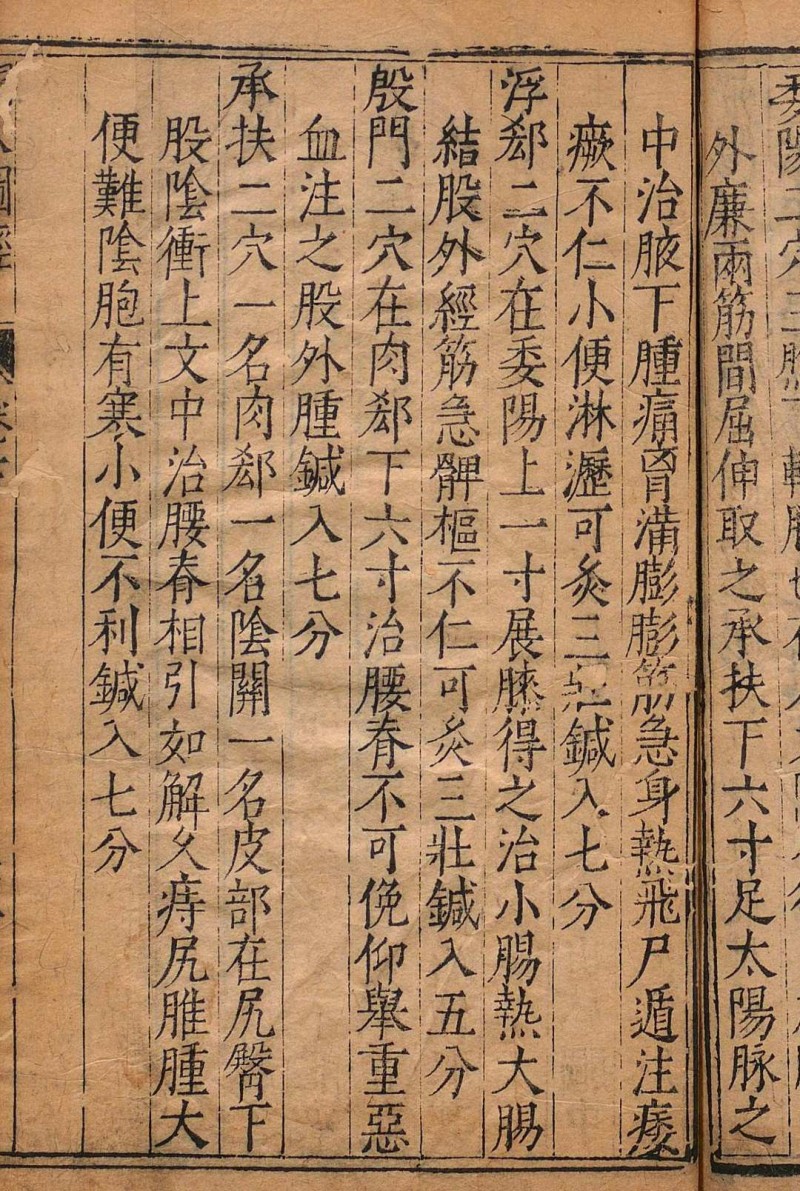 委陽二穴三膲下輔腧也在
外廉兩筋間屈伸取之承扶下六寸足太陽脉之
中治腋下腫痛胷滿膨膨筋急身熱飛尸遁注痿
瘚不仁小便淋瀝可灸三壯鍼入七分
浮郄二穴在委陽上一寸展膝得之治小腸熱大腸
結股外經筋急髀樞不仁可灸三壯鍼入五分
殷門二穴在肉郄下六寸治腰脊不可俛仰舉重惡
血注之股外腫鍼入七分
承扶二穴一名肉郄一名陰關一名皮部在尻臀下
股陰衝上文中治腰脊相引如解久痔尻脽腫大
便難陰胞有寒小便不利鍼入七分